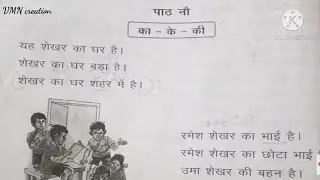 VMN creation
पाठ नौ
का - के - की
यह शेखर का घर है।
शेखर का घर बड़ा है।
शेखर का घर शहर में है।
रमेश शेखर का भाई है।
रमेश शेखर का छोटा भाई
उमा शेखर की बहन है।